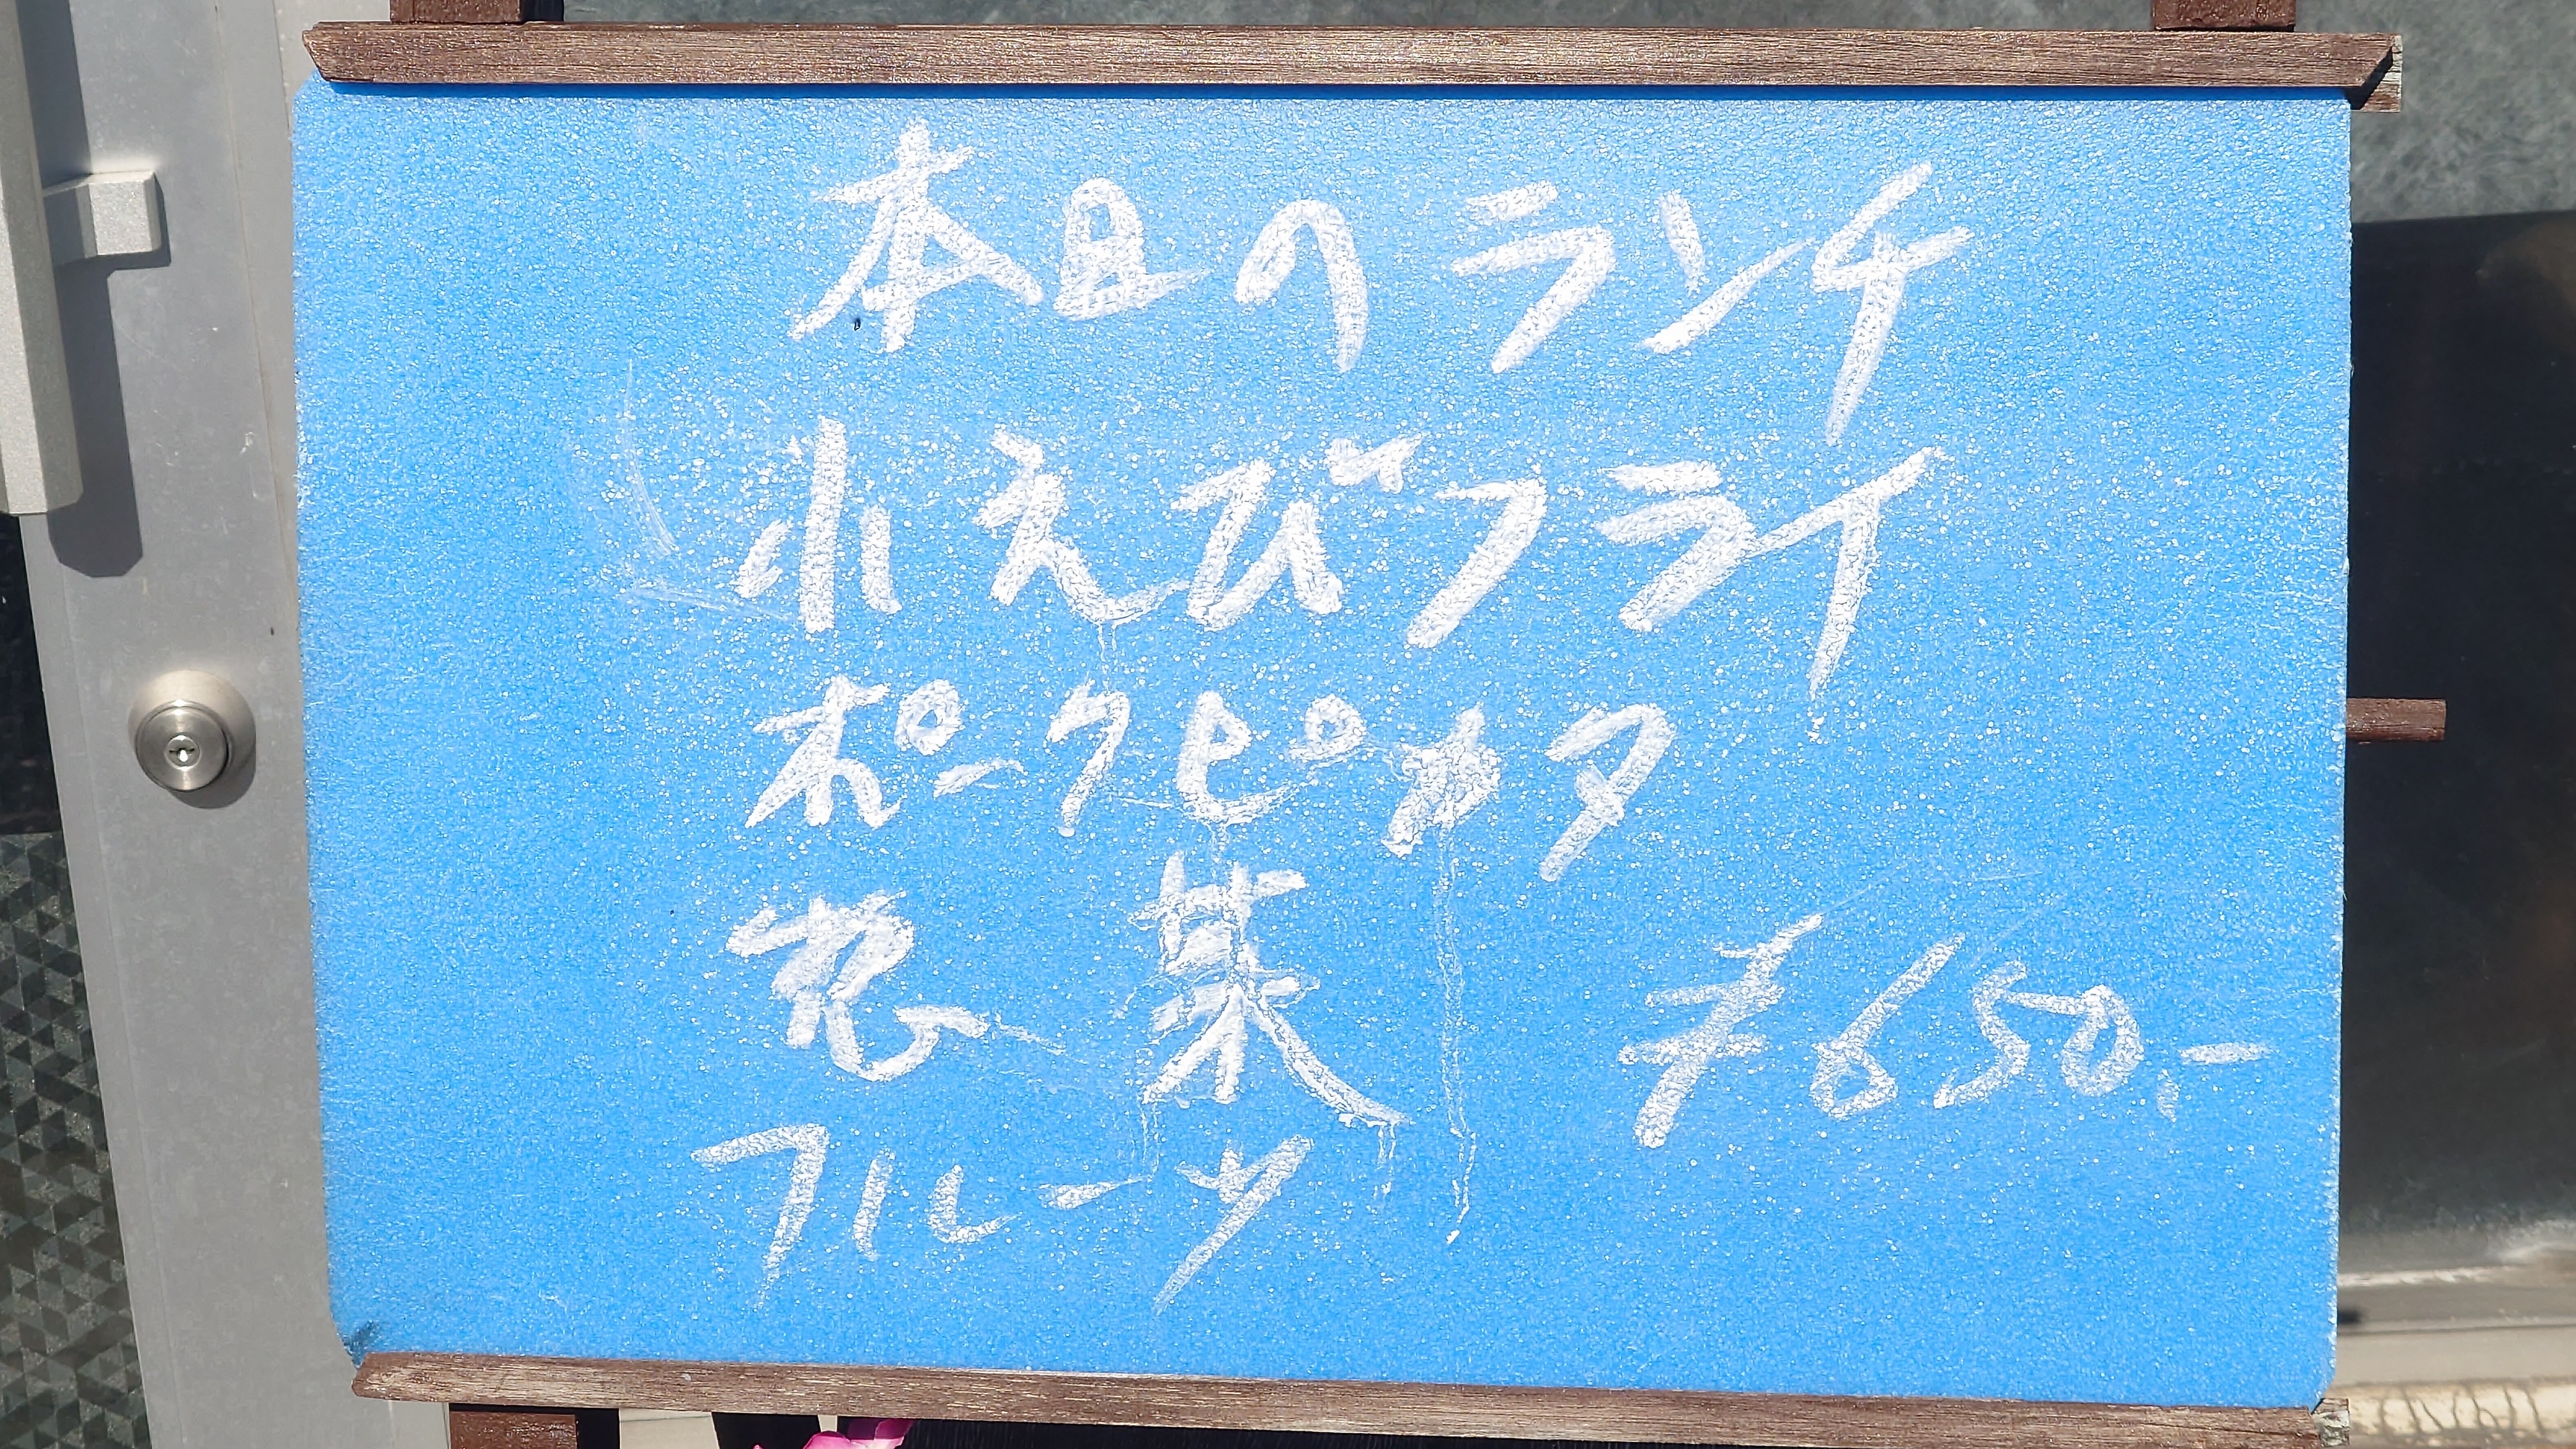 本日のランチ
小えびフライ
ポークピカタ
惣菜
フルーツ
¥650,-